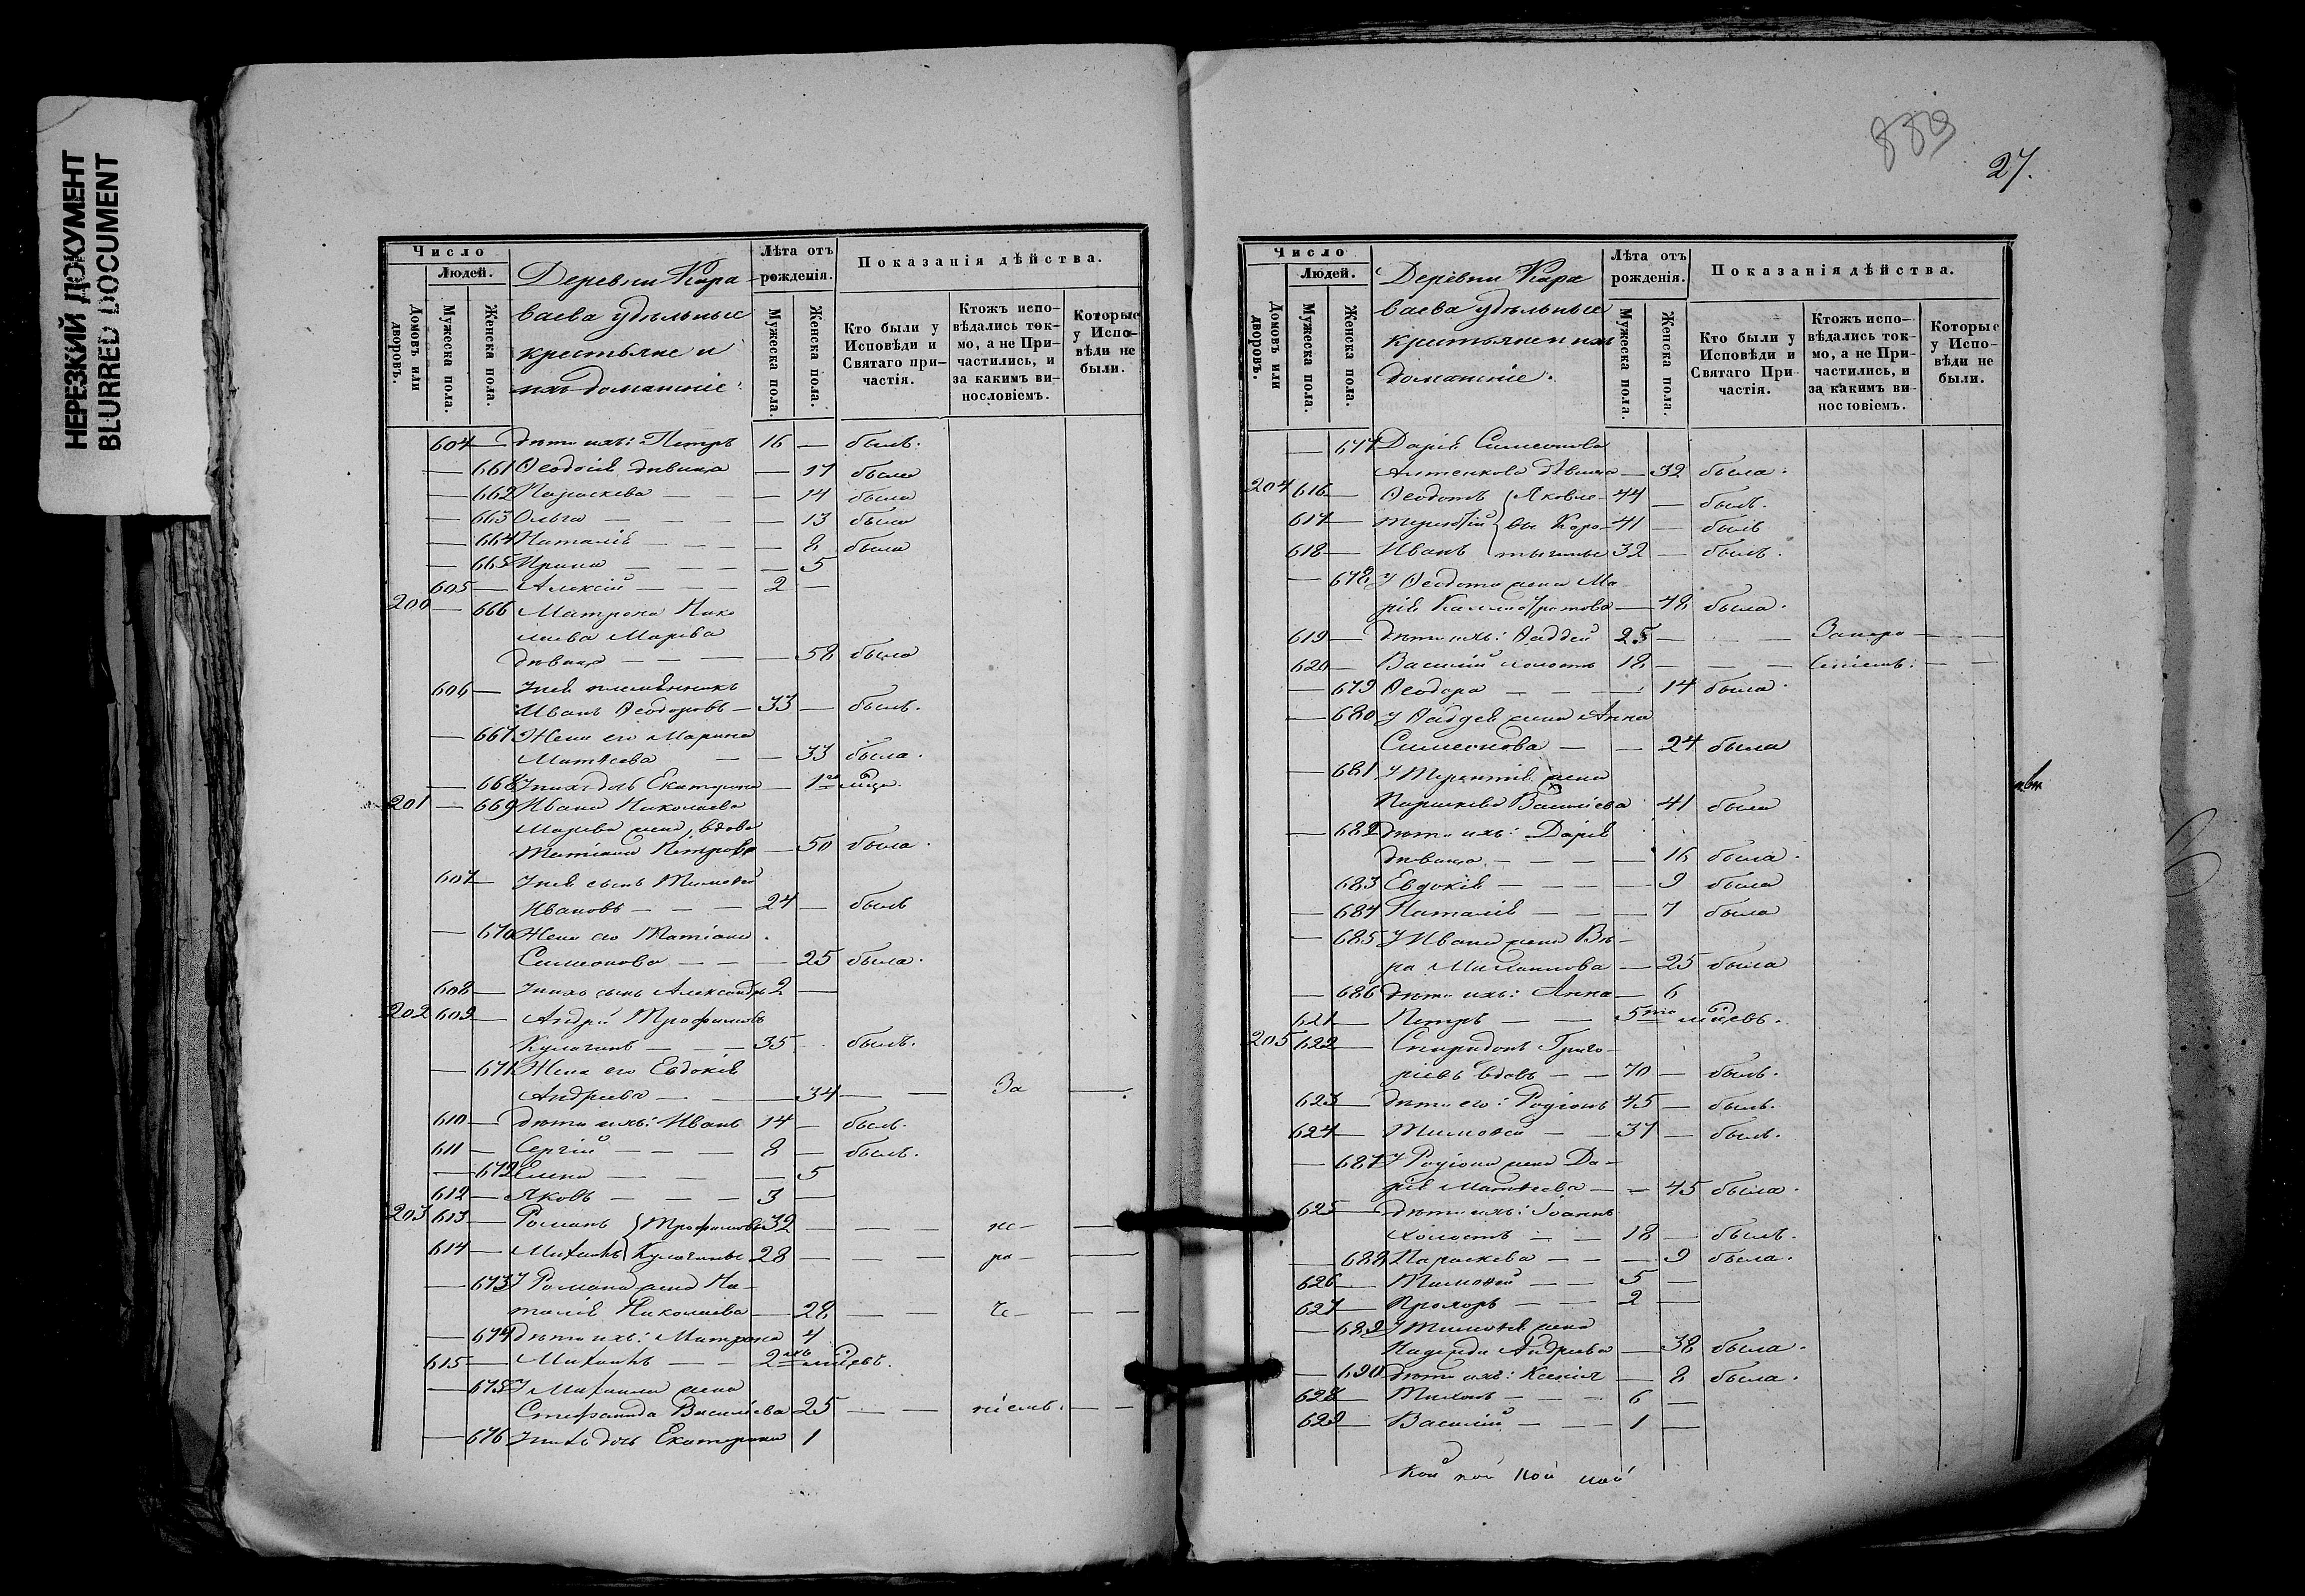 НЕРЕЗКИЙ ДОКУМЕНТ
BLURRED DOCUMENT
Число
Людей.
Домовъ или дворовъ.
Мужеска пола.
Женска пола.
Деревни Кара-
ваева удѣльные
крестьяне и
ихъ домашніе:
Лѣта отъ рожденія.
Мужеска пола.
Женска пола.
Показанія дѣйства.
Кто были у Исповѣди и Святаго причастія.
Ктожъ исповѣдались токмо, а не Причастились, и за какимъ винословіемъ.
Которые у Исповѣди не были.
604 — дѣти ихъ: Петръ 16 — былъ.
— 661 Ѳеодосія дѣвица — 17 была
— 662 Параскева — — — 14 была
— 663 Ольга — — — 13 была
— 664 Наталія — — — 8 была
— 665 Ирина — — — 5
605 — Алексій — — 2 —
200 — 666 Матрона Нико
лаева Марева
дѣвица — — — 58 была
606 — У нея племянникъ
Иванъ Ѳеодоровъ — 33 — былъ.
— 667 Жена его Марина
Матѳеева — — 33 была.
— 668 У нихъ дочь Екатерина — 1
201 — 669 Ивана Николаева
Марева жена, вдова
Татіана Петрова — 50 была.
607 — У нея сынъ Тимоѳей
Ивановъ — — — 24 — былъ
— 670 Жена его Татіана
Симеонова — — — 25 была.
608 — У нихъ сынъ Александръ 2 —
202 609 — Андрей Трофимовъ
Кулагинъ — — — 35 — былъ.
— 671 Жена его Евдокія
Андреева — — — 34 — — За —
610 — дѣти ихъ: Иванъ 14 — былъ.
611 — Сергій — — — 8 — былъ.
— 672 Елена — — — 5
612 — Яковъ — — — 3 —
203 613 — Романъ } Трофимовы 32 — — — не — —
614 — Михаилъ } Кулагины 28 — — — ра — —
— 673 У Романа жена На-
талія Николаева — 28 — — че — —
— 674 дѣти ихъ: Матрона 4
615 — Михаилъ — — 2 мѣсцевъ.
— 675 У Михаила жена
Стефанида Василіева 25 — — ніемъ. — —
— 676 У нихъ дочь Екатерина 1
889
27.
Число
Людей.
Домовъ или дворовъ.
Мужеска пола.
Женска пола.
Деревни Кара
ваева удѣльные
крестьяне и ихъ
домашніе.
Лѣта отъ рожденія.
Мужеска пола.
Женска пола.
Показанія дѣйства.
Кто были у Исповѣди и Святаго Причастія.
Ктожъ исповѣдались токмо, а не Причастились, и за какимъ винословіемъ.
Которые у Исповѣди не были.
— 677 Дарія Симеонова
дѣвица — 32 была.
204 616 — Ѳеодотъ } Яковле- 44 — былъ.
617 — Терентій } вы Коро- 41 — былъ
618 — Иванъ } тыгины 32 — былъ.
— 678 У Ѳеодота жена Ма-
рія Каллистратова — 48 была.
619 — дѣти ихъ: Ѳаддей 25 — — Занера — —
620 — Василій холостъ 18 — — — ченіемъ. — —
— 679 Ѳеодора — — — 14 была.
— 680 У Ѳаддея жена Анна
Симеонова — — 24 была
— 681 У Терентія жена
Параскева Василіева 41 была
— 682 дѣти ихъ: Дарія
дѣвица — — — — 16 была.
— 683 Евдокія — — — — 9 была
— 684 Наталія — — — 7 была
— 685 У Ивана жена Вѣ-
ра Михаилова — 25 была
— 686 дѣти ихъ: Анна — 6
621 — Петръ — — 5ти мѣсцевъ.
205 622 — Спиридонъ Григо-
ріевъ вдовъ — — 70 — былъ.
623 — дѣти его: Родіонъ 45 — былъ.
624 — Тимоѳей — — 37 — былъ.
— 687 У Родіона жена Да-
рія Матѳеева — — 45 была.
625 — дѣти ихъ: Іоаннъ
холостъ — — 18 — былъ.
— 688 Параскева — — — 9 была.
626 — Тимоѳей — — 5 —
627 — Прохоръ — — 2 —
— 689 У Тимоѳея жена
Надежда Андреева — 38 была.
— 690 дѣти ихъ: Ксенія — 8 была.
628 — Тихонъ — — — 6 —
629 — Василій — — — 1 —